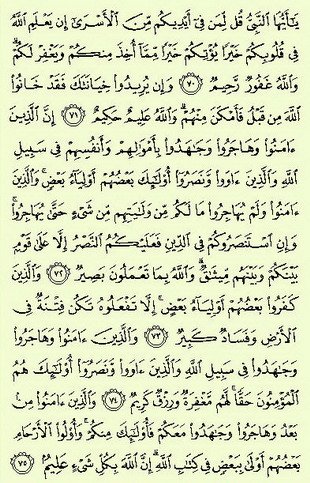 يَٰٓأَيُّهَا ٱلنَّبِيُّ قُل لِّمَن فِىٓ أَيْدِيكُم مِّنَ ٱلْأَسْرَىٰٓ إِن يَعْلَمِ ٱللَّهُ
فِى قُلُوبِكُمْ خَيْرًا يُؤْتِكُمْ خَيْرًا مِّمَّآ أُخِذَ مِنكُمْ وَيَغْفِرْ لَكُمْ ۗ
وَٱللَّهُ غَفُورٌ رَّحِيمٌ ٧٠ وَإِن يُرِيدُوا۟ خِيَانَتَكَ فَقَدْ خَانُوا۟
ٱللَّهَ مِن قَبْلُ فَأَمْكَنَ مِنْهُمْ ۗ وَٱللَّهُ عَلِيمٌ حَكِيمٌ ٧١ إِنَّ ٱلَّذِينَ
ءَامَنُوا۟ وَهَاجَرُوا۟ وَجَٰهَدُوا۟ بِأَمْوَٰلِهِمْ وَأَنفُسِهِمْ فِى سَبِيلِ
ٱللَّهِ وَٱلَّذِينَ ءَاوَوا۟ وَّنَصَرُوٓا۟ أُو۟لَٰٓئِكَ بَعْضُهُمْ أَوْلِيَآءُ بَعْضٍ ۚ وَٱلَّذِينَ
ءَامَنُوا۟ وَلَمْ يُهَاجِرُوا۟ مَا لَكُم مِّن وَلَٰيَتِهِم مِّن شَىْءٍ حَتَّىٰ يُهَاجِرُوا۟ ۚ
وَإِنِ ٱسْتَنصَرُوكُمْ فِى ٱلدِّينِ فَعَلَيْكُمُ ٱلنَّصْرُ إِلَّا عَلَىٰ قَوْمٍۭ
بَيْنَكُمْ وَبَيْنَهُم مِّيثَٰقٌ ۗ وَٱللَّهُ بِمَا تَعْمَلُونَ بَصِيرٌ ٧٢ وَٱلَّذِينَ
كَفَرُوا۟ بَعْضُهُمْ أَوْلِيَآءُ بَعْضٍ ۚ إِلَّا تَفْعَلُوهُ تَكُن فِتْنَةٌ فِى
ٱلْأَرْضِ وَفَسَادٌ كَبِيرٌ ٧٣ وَٱلَّذِينَ ءَامَنُوا۟ وَهَاجَرُوا۟
وَجَٰهَدُوا۟ فِى سَبِيلِ ٱللَّهِ وَٱلَّذِينَ ءَاوَوا۟ وَّنَصَرُوٓا۟ أُو۟لَٰٓئِكَ هُمُ
ٱلْمُؤْمِنُونَ حَقًّا ۚ لَّهُم مَّغْفِرَةٌ وَرِزْقٌ كَرِيمٌ ٧٤ وَٱلَّذِينَ ءَامَنُوا۟ مِنۢ
بَعْدُ وَهَاجَرُوا۟ وَجَٰهَدُوا۟ مَعَكُمْ فَأُو۟لَٰٓئِكَ مِنكُمْ ۚ وَأُو۟لُوا۟ ٱلْأَرْحَامِ
بَعْضُهُمْ أَوْلَىٰ بِبَعْضٍ فِى كِتَٰبِ ٱللَّهِ ۗ إِنَّ ٱللَّهَ بِكُلِّ شَىْءٍ عَلِيمٌۢ ٧٥